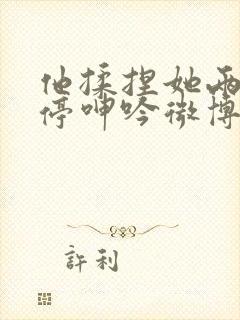 他揉捏她两
停呻吟微博
許利